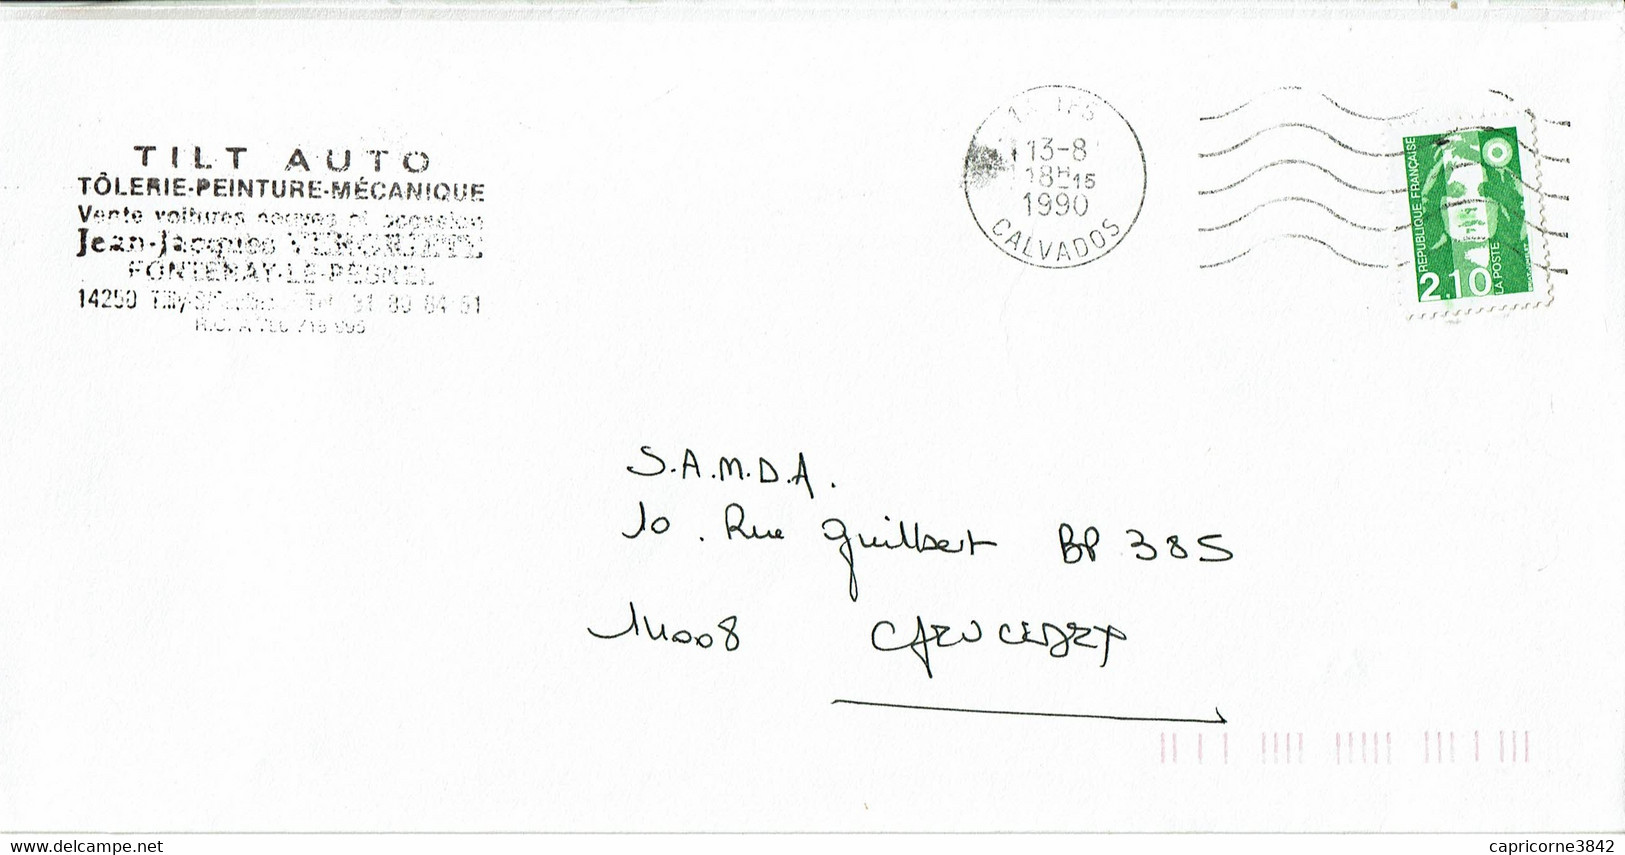 TILT AUTO
TÔLERIE-PEINTURE-MÉCANIQUE
Vente voitures neuves et occasion
Jean-Jacques
FONTENAY-LE-PESNEL
14250 Tilly Tél. 31 80 84 51
R.C. A
14 IFS
13-8
18H15
1990
CALVADOS
REPUBLIQUE FRANÇAISE
2,10
LA POSTE
S.A.M.D.A.
10. Rue Guilbert BP 385
14008 CAEN CEDEX
delcampe.net
capricorne3842